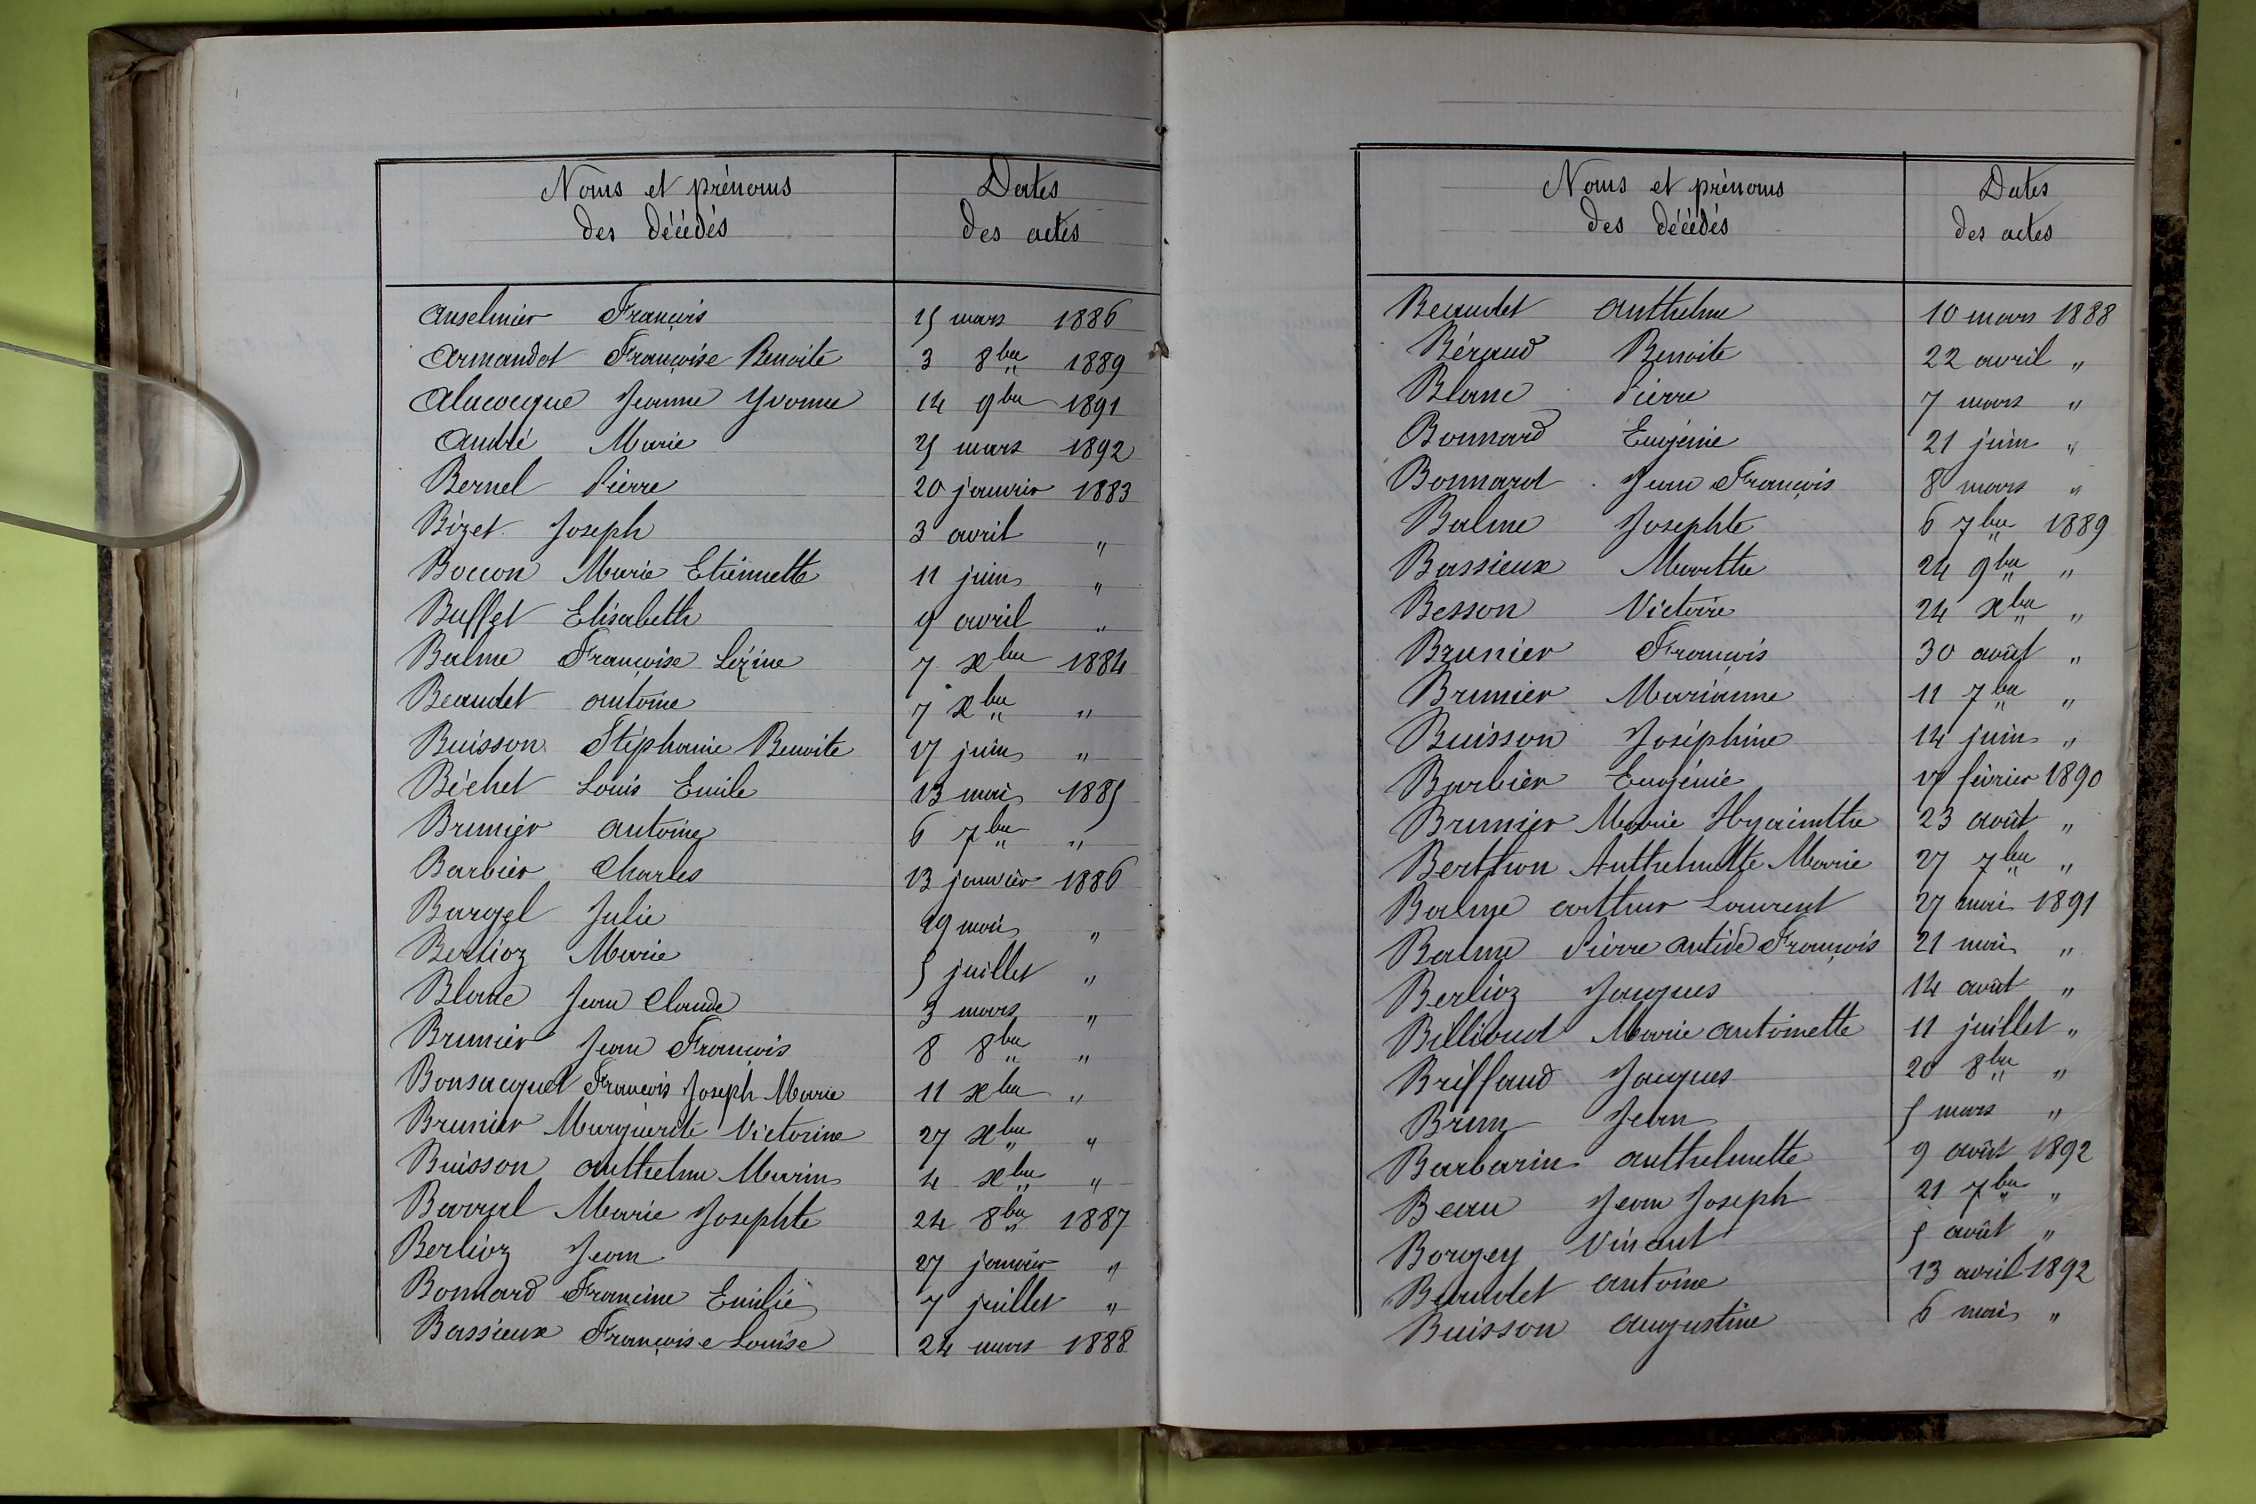 Noms et prénoms
des décédés
Dates
des actes
Anselmier François 15 mars 1886
Armandot Françoise Benoite 3 8bre 1889
Alacocque Jeanne Yvonne 14 9bre 1891
André Marie 25 mars 1892
Bernel Pierre 20 janvier 1883
Bizet Joseph 3 avril "
Boccon Marie Etiennette 11 juin "
Buffet Elisabeth 9 avril "
Balme Françoise Lézine 7 xbre 1884
Beaudet Antoine 7 xbre "
Buisson Stéphanie Benoite 17 juin "
Béchet Louis Emile 13 mai 1885
Brunier Antoine 6 7bre "
Barbier Charles 13 janvier 1886
Bargel Julie 29 mai "
Berlioz Marie 5 juillet "
Blanc Jean Claude 3 mars "
Brunier Jean François 8 8bre "
Bonsacquet François Joseph Marie 11 xbre "
Brunier Marguérite Victorine 27 xbre "
Buisson Anthelme Marin 4 xbre "
Barral Marie Josephte 24 8bre 1887
Berlioz Jean 27 janvier "
Bonnard Francine Emilie 7 juillet "
Bassieux Françoise Louise 24 mars 1888
Noms et prénoms
des décédés
Dates
des actes
Beaudet Anthelme 10 mars 1888
Béraud Benoite 22 avril "
Blanc Pierre 7 mars "
Bonnard Eugénie 21 juin "
Bonnard Jean François 8 mars "
Balme Josephte 6 7bre 1889
Bassieux Marthe 24 9bre "
Besson Victoire 24 xbre "
Brunier François 30 août "
Brunier Marianne 11 7bre "
Buisson Joséphine 14 juin "
Barbier Eugénie 17 février 1890
Brunier Marie Hyacinthe 23 août "
Berthon Anthelmette Marie 27 7bre "
Balme Arthur Laurent 27 mai 1891
Balme Pierre Antide François 21 mai "
Berlioz Jacques 14 août "
Billioud Marie Antoinette 11 juillet "
Briffaud Jacques 20 8bre "
Brun Jean 5 mars "
Barbarin Anthelmette 9 août 1892
Beau Jean Joseph 21 7bre "
Borgey Vincent 5 août "
Beaudet Antoine 13 avril 1892
Buisson Augustine 6 mai "